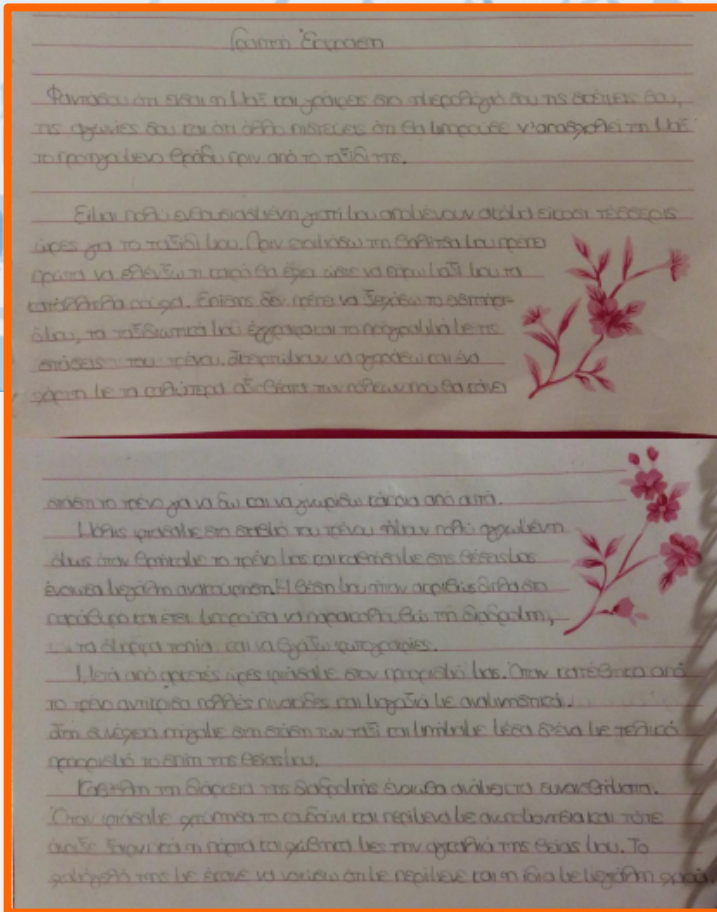 Γραπτή Έκφραση
Φαντάσου ότι είσαι η Μαξ και γράφεις στο ημερολόγιό σου τις σκέψεις σου,
τις αγωνίες σου και ότι άλλο πιστεύεις ότι θα μπορούσε ν'απασχολεί τη Μαξ
το προηγούμενο βράδυ πριν από το ταξίδι της.
Είμαι πολύ ενθουσιασμένη γιατί μου απομένουν ακόμα είκοσι τέσσερις
ώρες για το ταξίδι μου. Πριν ετοιμάσω τη βαλίτσα μου πρέπει
πρώτα να ελέγξω τι καιρό θα έχει ώστε να πάρω μαζί μου τα
κατάλληλα ρούχα. Επίσης δεν πρέπει να ξεχάσω το εισιτήριό
μου, τα ταξιδιωτικά μου έγγραφα και το πρόγραμμα με τις
στάσεις του τρένου. Σκέφτομαι να αγοράσω και ένα
χάρτη με τα καλύτερα αξιοθέατα των πόλεων που θα κάνει
στάση το τρένο για να δω και να γνωρίσω κάποια από αυτά.
Μόλις φτάσαμε στο σταθμό του τρένου ήμουν πολύ αγχωμένη
όμως όταν βρήκαμε το τρένο μας και καθίσαμε στις θέσεις μας
ένιωσα μεγάλη ανακούφιση. Η θέση μου ήταν ακριβώς δίπλα στο
παράθυρο και έτσι μπορούσα να παρακολουθώ τη διαδρομή,
τα όμορφα τοπία και να βγάζω φωτογραφίες.
Μετά από αρκετές ώρες φτάσαμε στον προορισμό μας. Όταν κατέβηκα από
το τρένο αντίκρισα πολλές πινακίδες και μαγαζιά με αναμνηστικά.
Στη συνέχεια πήγαμε στη στάση των ταξί και μπήκαμε μέσα σε ένα με τελικό
προορισμό το σπίτι της θείας μου.
Καθ'όλη τη διάρκεια της διαδρομής ένιωθα ανάμεικτα συναισθήματα.
Όταν φτάσαμε χτύπησα το κουδούνι και περίμενα με ανυπομονησία και τότε
άνοιξε ξαφνικά η πόρτα και χώθηκα μες την αγκαλιά της θείας μου. Το
χαμόγελό της με έκανε να νιώσω ότι με περίμενε και η ίδια με μεγάλη χαρά.